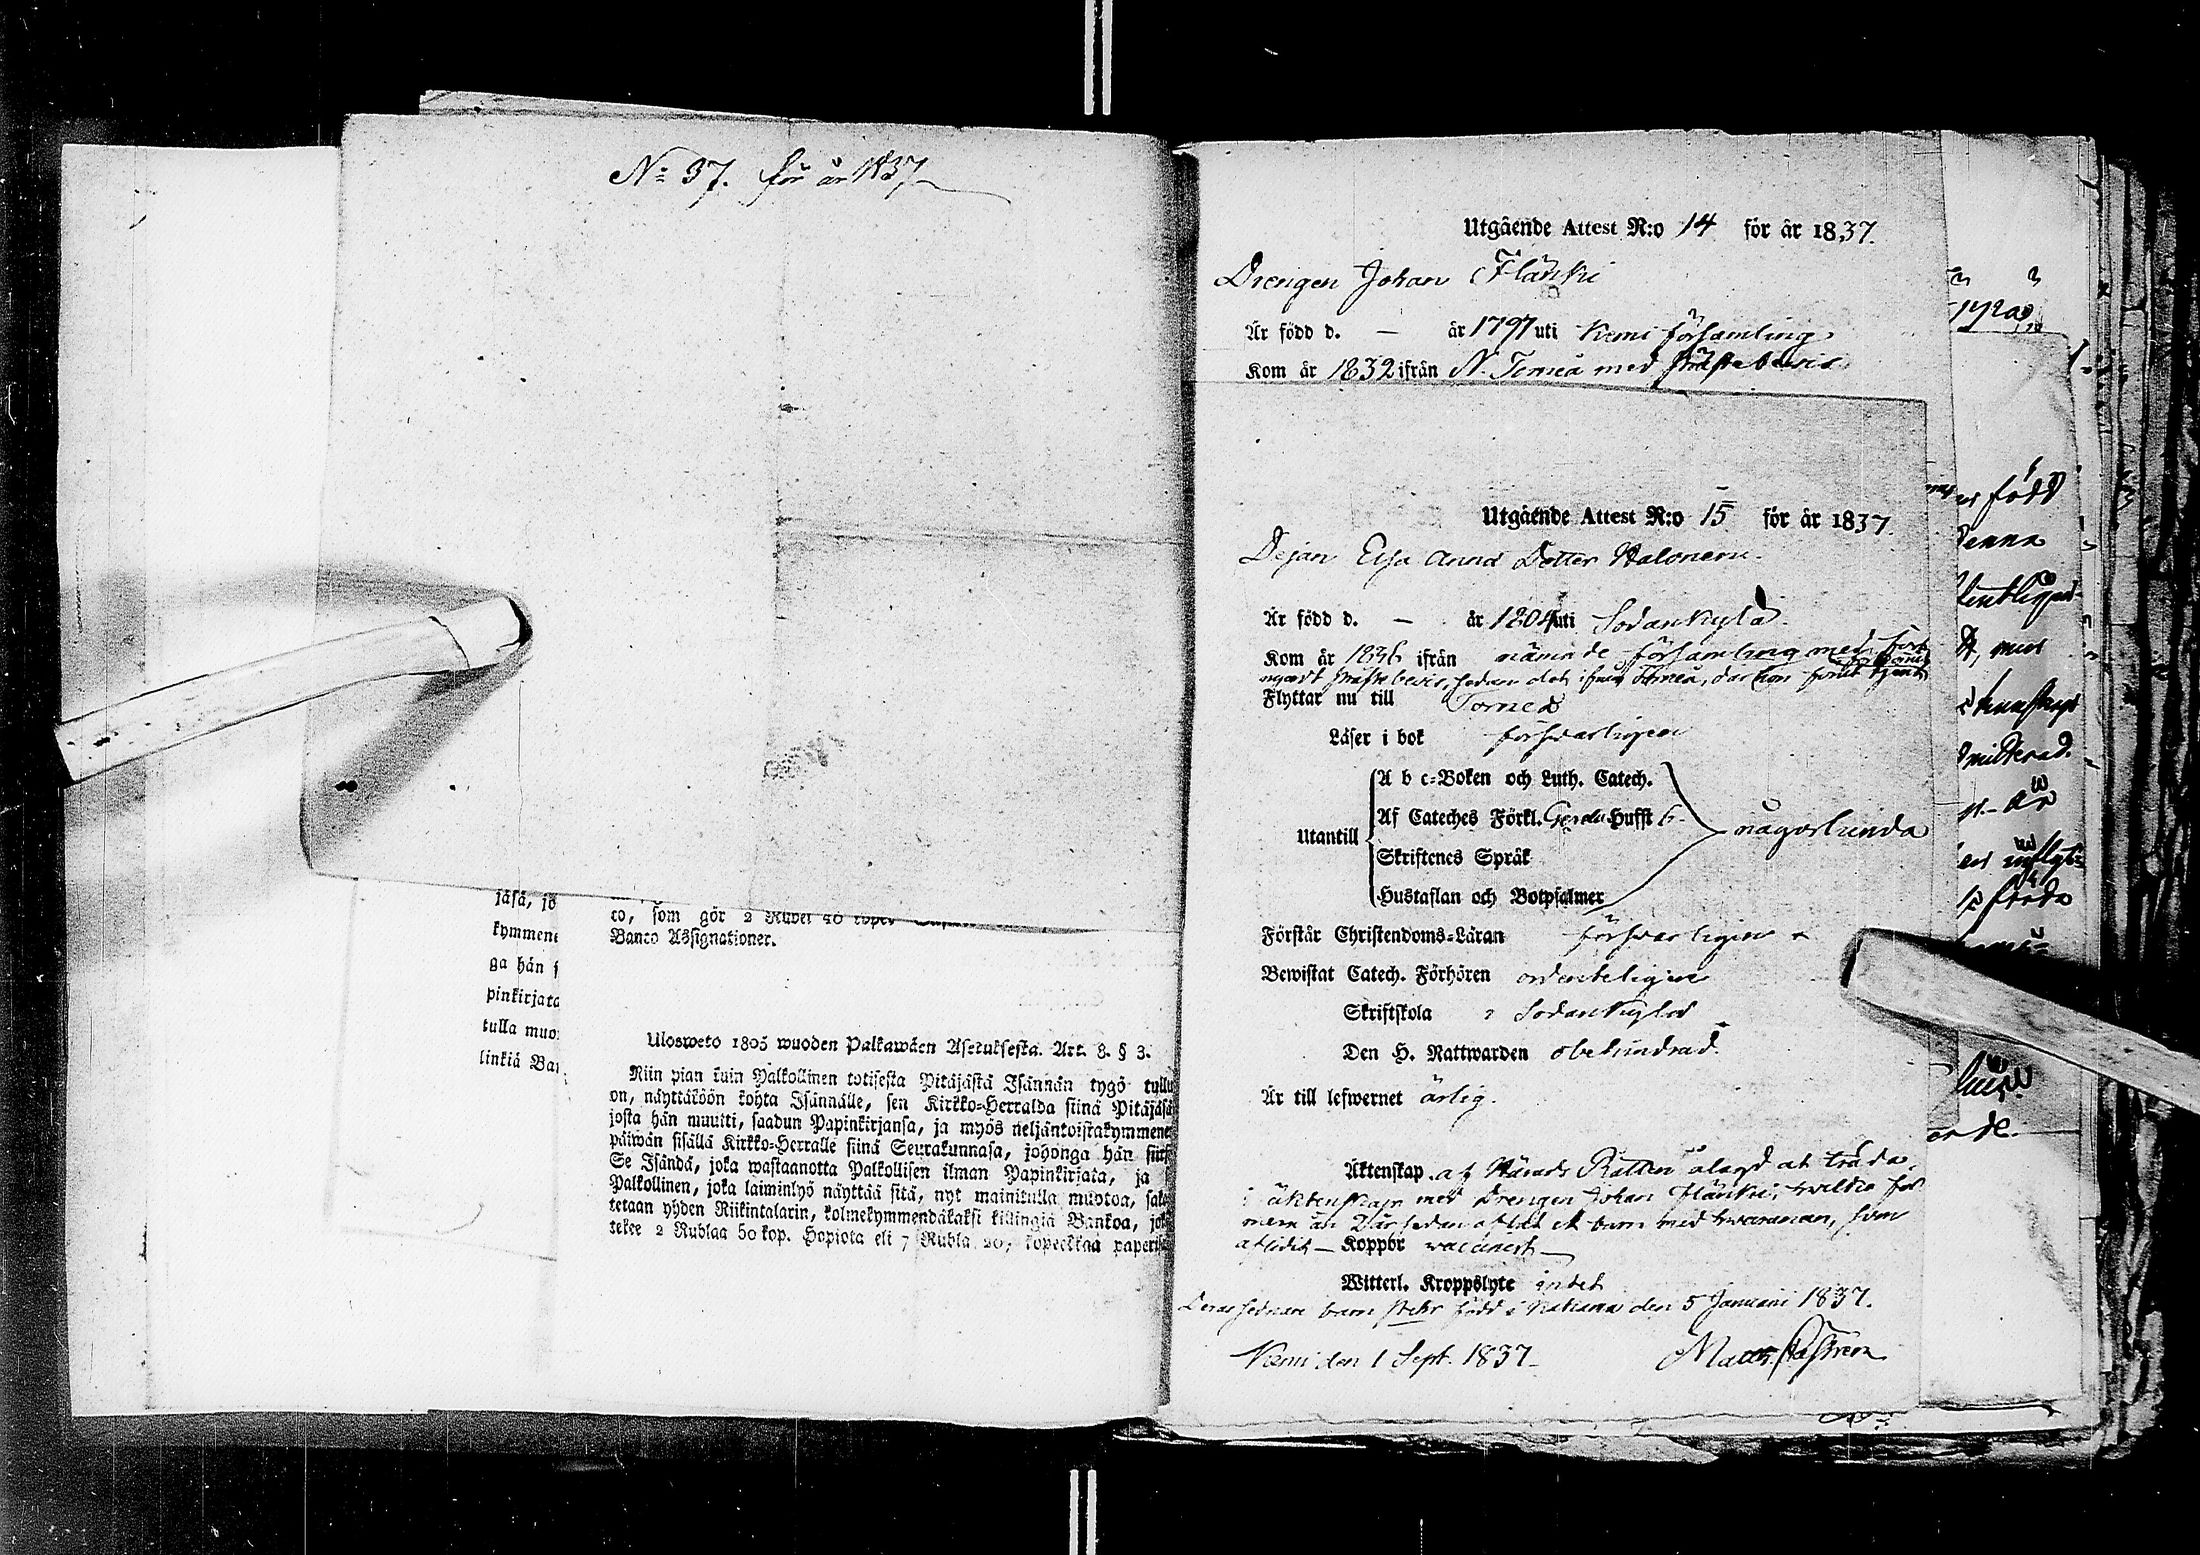 No 37. för år 1837
jäsä, jo
kymmene
ga hän s
pinkirjata
tulla muo
linkiä Ban
co, som gör 2 Rubel 40 copek
Banco Assignationer.
Ulosweto 1805 wuoden Palkawäen Asetuksesta. Art. 8. § 3.
Niin pian kuin Palkollinen totisesta Pitäjästä Isännän tygö tullu
on, näyttäköön kohta Isännälle, sen Kirkko-Herralda siinä Pitäjäsä
josta hän muutti, saadun Papinkirjansa, ja myös neljäntoistakymmene
päiwän sisällä Kirkko-Herralle siinä Seurakunnasa, johonga hän siirt
Se Isändä, joka wastaanotta Palkollisen ilman Papinkirjata, ja
Palkollinen, joka laiminlyö näyttää sitä, nyt mainitulla muotoa, sako
tetaan yhden Riikintalarin, kolmekymmendäkaksi killingiä Bankoa, jok
tekee 2 Rublaa 50 kop. Hopiota eli 7 Rubla 20, kopeekkaa paperi
Utgående Attest N:o 14 för år 1837.
Drengen Johan Flänki
Är född d. — år 1797 uti Kemi församling
Kom år 1832 ifrån N. Torneå med prästebevis
Utgående Attest N:o 15 för år 1837.
Dejan Elsa Anna Dotter Halonen.
Är född d. — år 1804 uti Sodankylä.
Kom år 1836 ifrån nämnde församling med
prästebevis, sedan det ifrån Torneå, der hon förut tjent
Flyttar nu till Torneå
Läser i bok förswarligen
A b c-Boken och Luth. Catech.
Af Cateches Förkl. Gerdu Hufst 6
Utantill någorlunda
Skriftenes Språk
Hustaflan och Botpsalmer
Förstår Christendoms-Läran förswarligen
Bewistat Catech. Förhören ordenteligen
Skriftskola i Sodankylä
Den H. Nattwarden obehindrad.
Är till lefwernet ärlig.
Äktenskap af Härads Rätten ålagd at träda
i äktenskap med Drengen Johan Flänki, hvilka för
mera än 2 år sedan aflat et barn med hwarannan, som
aflidit — Koppor vaccinerat —
Witterl. Kroppslyte intet
Deras sednare barn född i den 5 Januari 1837.
Kemi den 1 Sept. 1837
Matts Castrén
född
denna
med